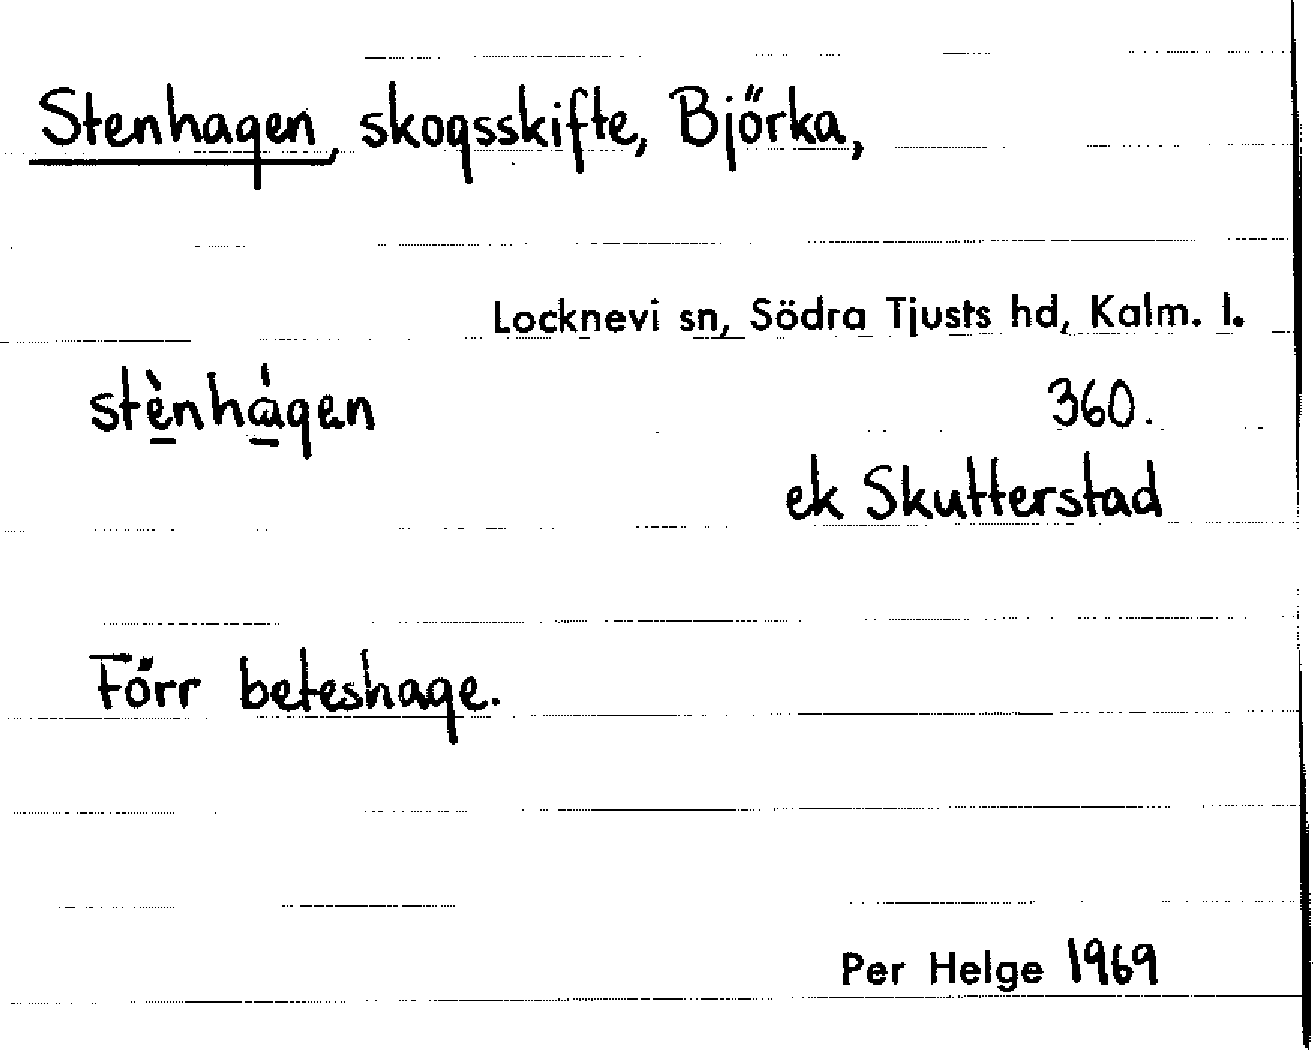 Stenhagen, skogsskifte, Björka,
Locknevi sn, Södra Tjusts hd, Kalm. l.
stè̱nhá̱gen 360.
ek Skutterstad
Förr beteshage.
Per Helge 1969